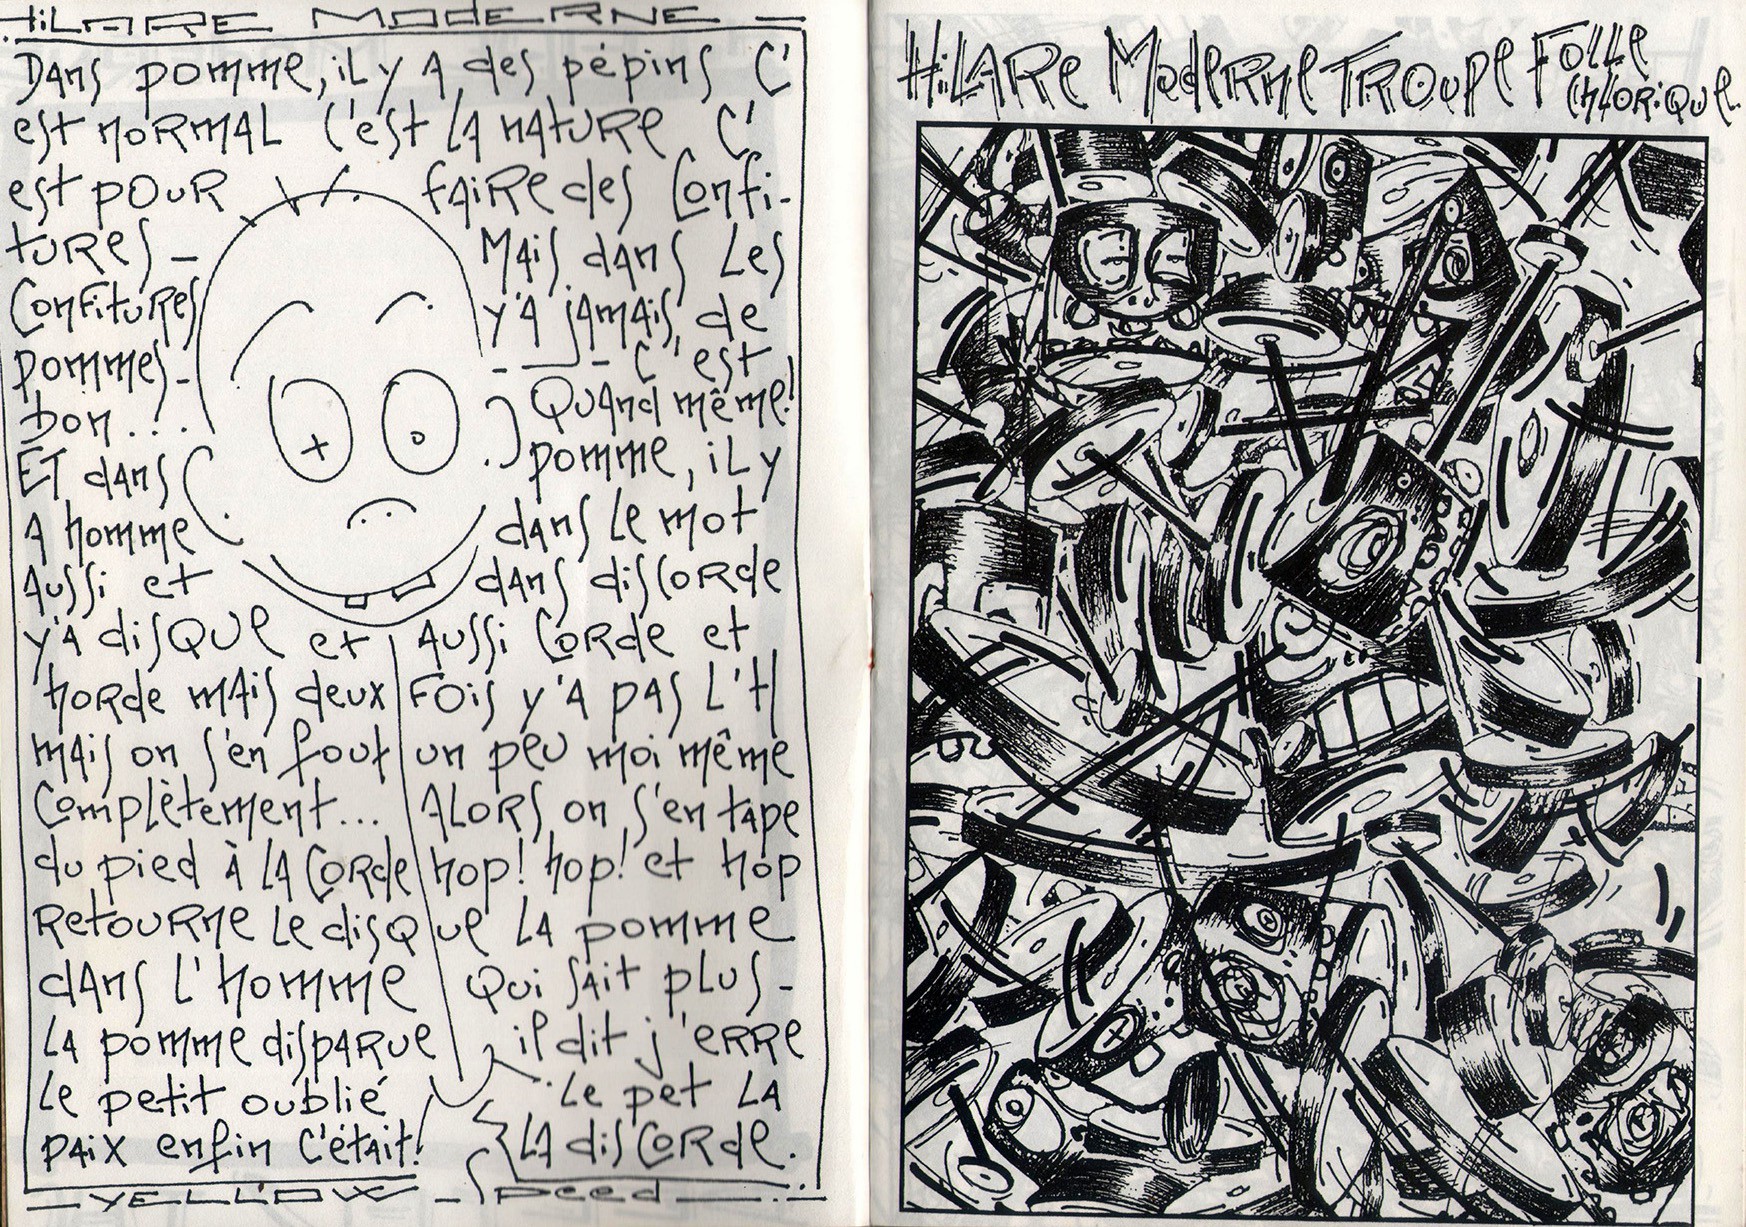 HILARE MODERNE
Dans pomme, il y a des pépins C'
est normal C'est la nature C'
est pour faire des confi-
tures - Mais dans les
Confitures y'a jamais de
pommes - - C'est
bon... Quand même!
Et dans pomme, il y
a homme dans le mot
Aussi et dans discorde
y'a disque et aussi corde et
horde mais deux fois y'a pas l'H
mais on s'en fout un peu moi même
Complètement... Alors on s'en tape
du pied à la corde hop! hop! et hop
Retourne le disque la pomme
dans l'homme qui sait plus -
la pomme disparue il dit j'erre
le petit oublié le pet la
paix enfin c'était! la discorde.
YELLOW SPEED
HILARE MODERNE TROUPE FOLLE
CHLORIQUE